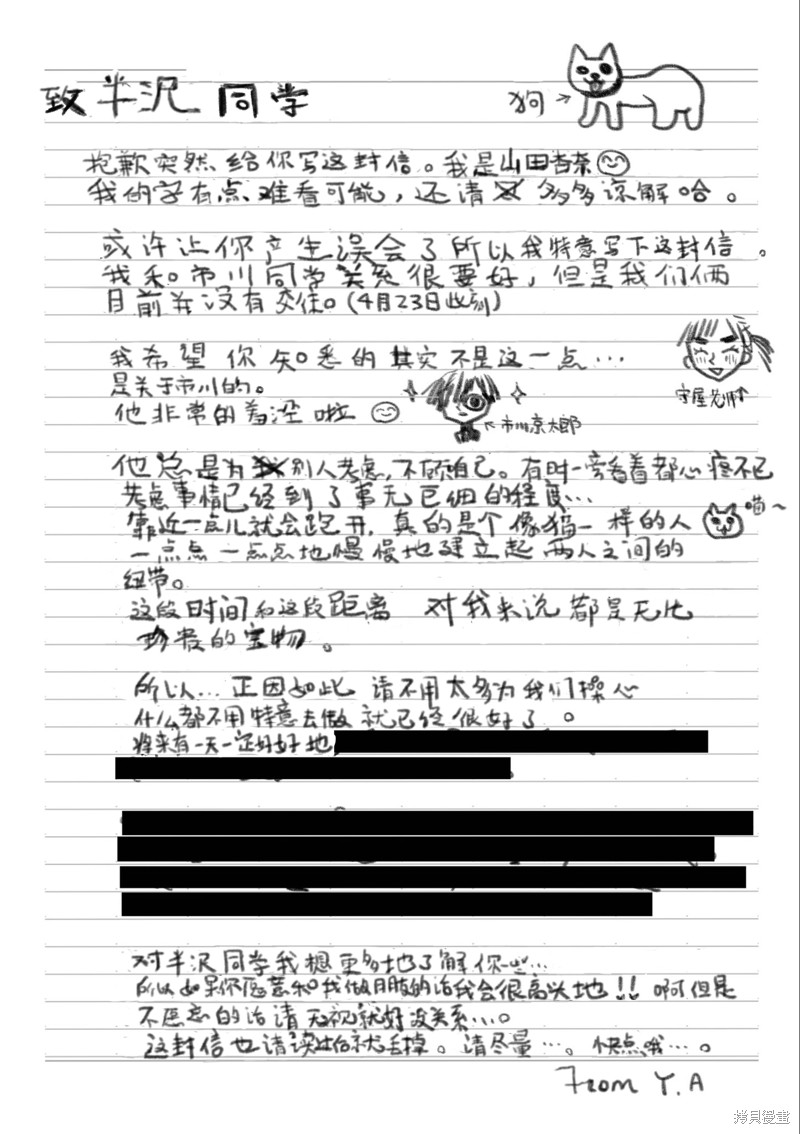 致半沢同学
狗→
抱歉突然给你写这封信。我是山田杏奈
我的字有点难看可能，还请多多谅解哈。
或许让你产生误会了所以我特意写下这封信。
我和市川同学关系很要好，但是我们俩
目前并没有交往。(4月23日此刻)
我希望你知悉的其实不是这一点…
是关于市川的。
他非常的羞涩啦
守屋老师↑
←市川京太郎
他总是为别人考虑，不顾自己。有时一旁看着都心疼不已
考虑事情已经到了事无巨细的程度…
靠近一点儿就会跑开，真的是个像猫一样的人
喵~
一点点一点点地慢慢地建立起两人之间的
纽带。
这段时间和这段距离 对我来说都是无比
珍贵的宝物。
所以…正因如此 请不用太多为我们操心
什么都不用特意去做就已经很好了。
将来有一天一定好好地
对半沢同学我想更多地了解你一些…
所以如果你愿意和我做朋友的话我会很高兴地!! 啊但是
不愿意的话请无视就好没关系…。
这封信也请读完后就丢掉。请尽量…。快点哦…。
From Y.A
拷貝漫畫